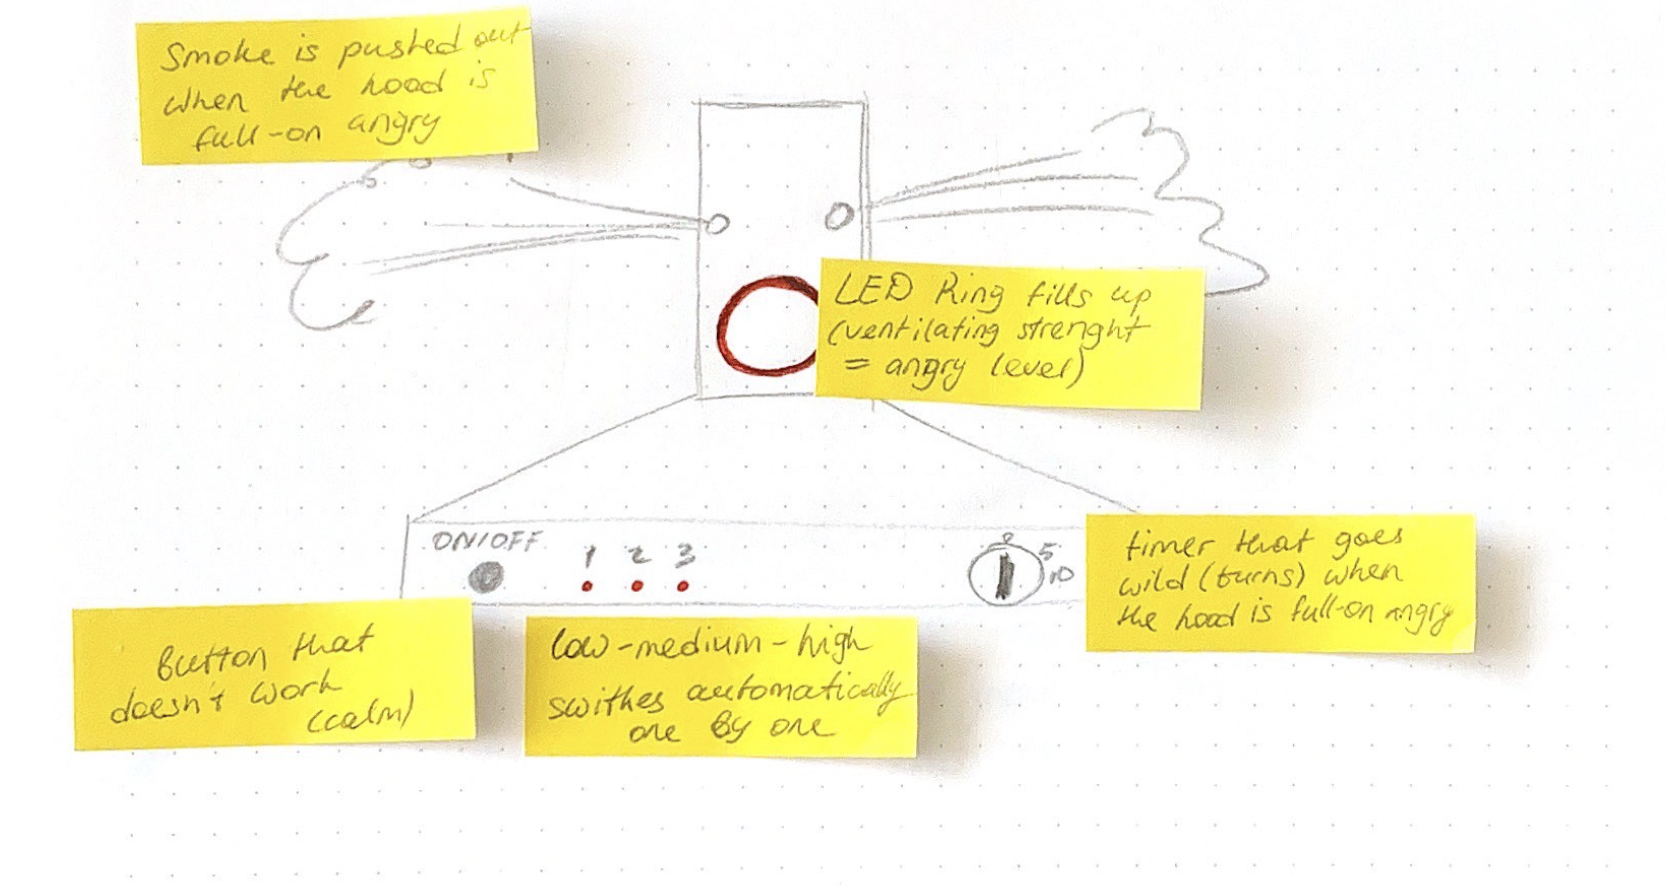 Smoke is pushed out
when the hood is
full-on angry
LED Ring fills up
(ventilating strenght
= angry level)
ON/OFF
1 2 3
5
10
timer that goes
wild (turns) when
the hood is full-on angry
Button that
doesn't work
(calm)
low-medium-high
swithes automatically
one by one